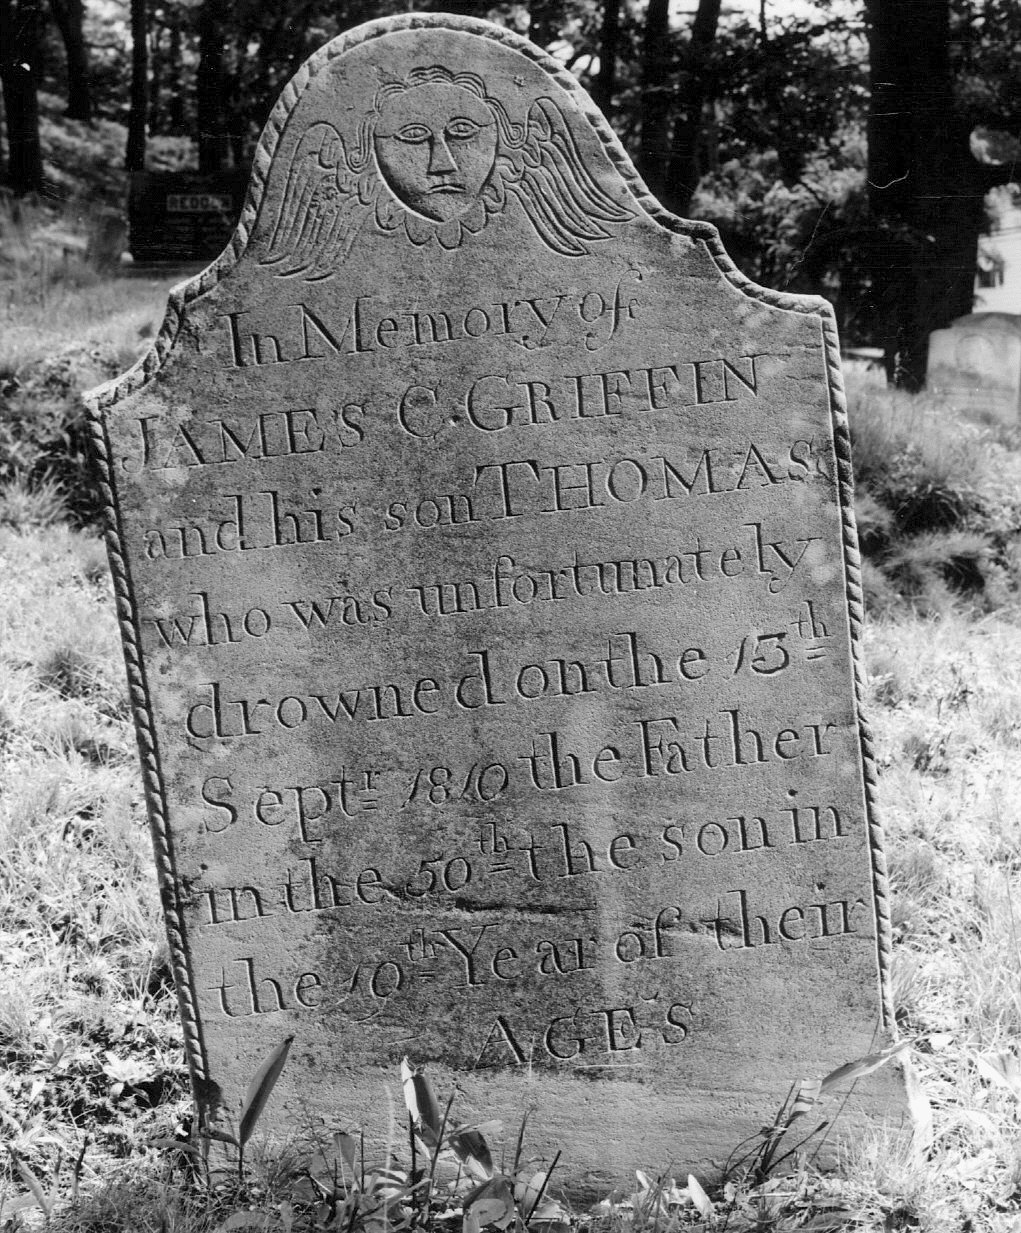 In Memory of
JAMES C. GRIFFIN
and his son THOMAS
who was unfortunately
drowned on the 13th
Septr 1810 the Father
in the 50th the son in
the 19th Year of their
AGES